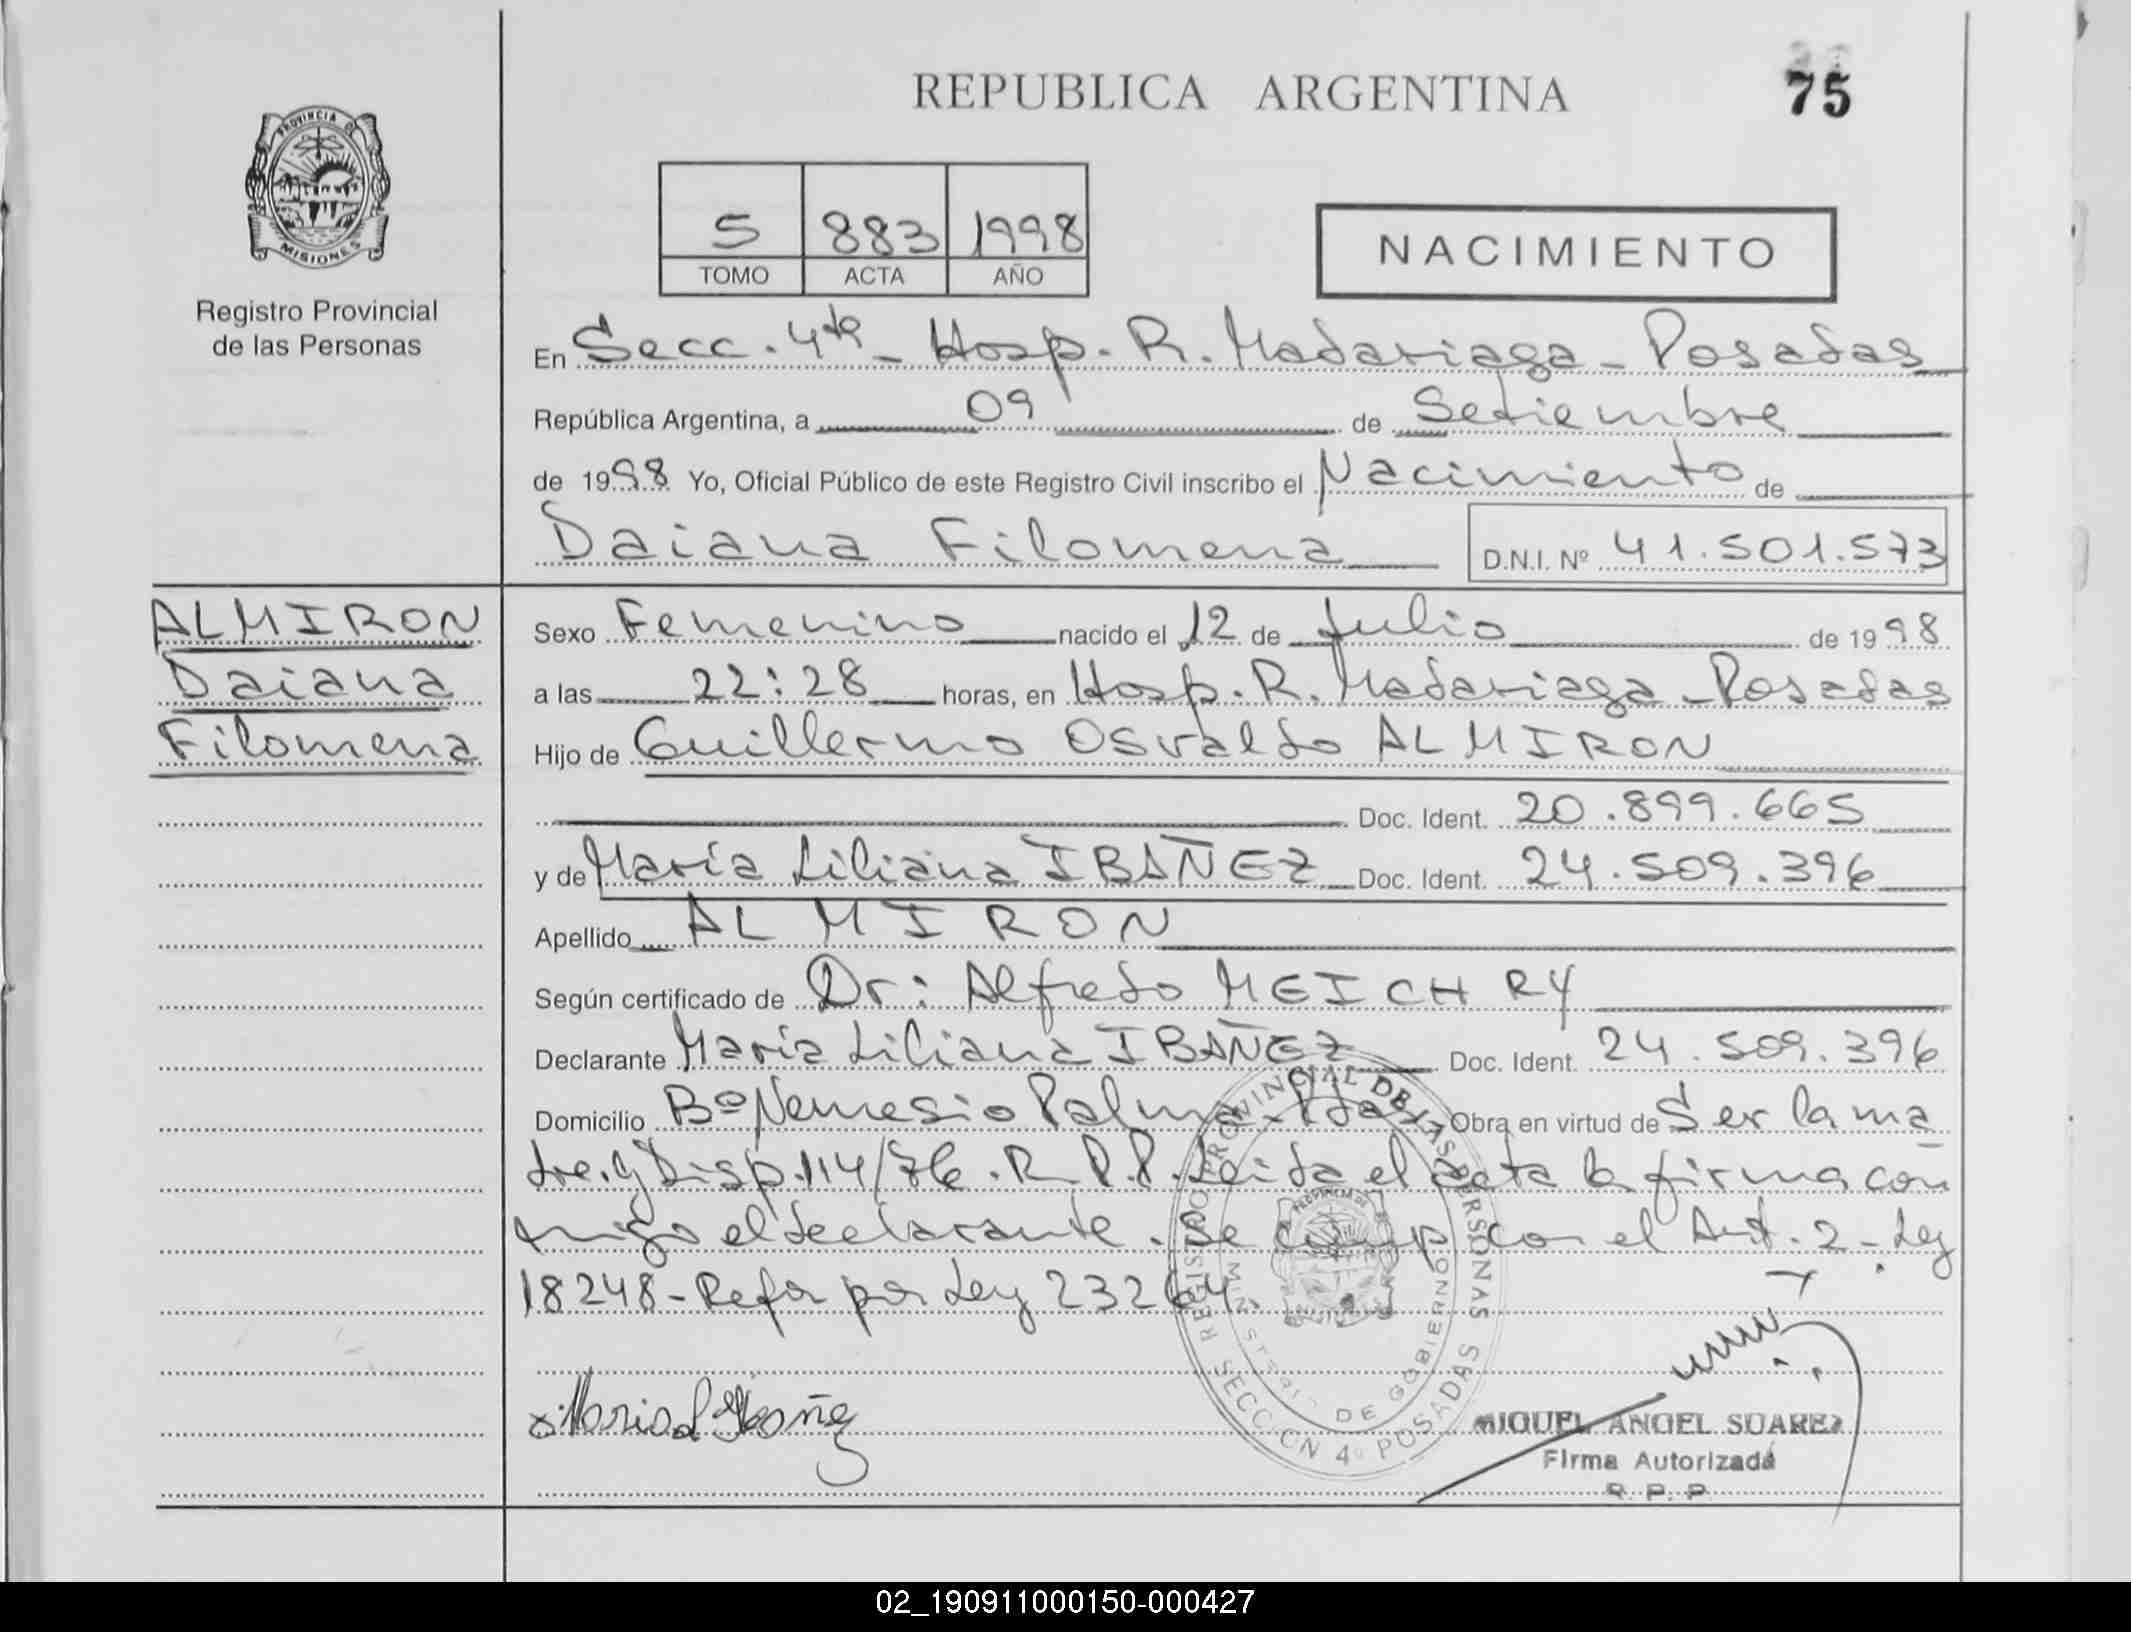 REPUBLICA ARGENTINA
75
PROVINCIA DE
MISIONES
Registro Provincial
de las Personas
5 883 1998
TOMO ACTA AÑO
NACIMIENTO
En Secc. 4ta - Hosp. R. Madariaga - Posadas
República Argentina, a 09 de Setiembre
de 1998 Yo, Oficial Público de este Registro Civil inscribo el Nacimiento de
Daiana Filomena D.N.I. Nº 41.501.573
ALMIRON
Daiana
Filomena
Sexo Femenino nacido el 12 de Julio de 1998
a las 22:28 horas, en Hosp. R. Madariaga - Posadas
Hijo de Guillermo Osvaldo ALMIRON
Doc. Ident. 20.899.665
y de María Liliana IBAÑEZ Doc. Ident. 24.509.396
Apellido ALMIRON
Según certificado de Dr: Alfredo MEICHRY
Declarante María Liliana IBAÑEZ Doc. Ident. 24.509.396
Domicilio Bº Nemesio Palma - Pdas Obra en virtud de Ser la ma
dre. y Disp. 114/76. R.P.P. Leida el acta la firma con
migo el declarante. Se cump con el Art. 2 - Ley
18248 - Refor por Ley 23264.
Maria L Ibañez
REGISTRO PROVINCIAL DE LAS PERSONAS
MINISTERIO DE GOBIERNO
SECCION 4º POSADAS
MIGUEL ANGEL SUAREZ
Firma Autorizada
R. P. P.
02_190911000150-000427